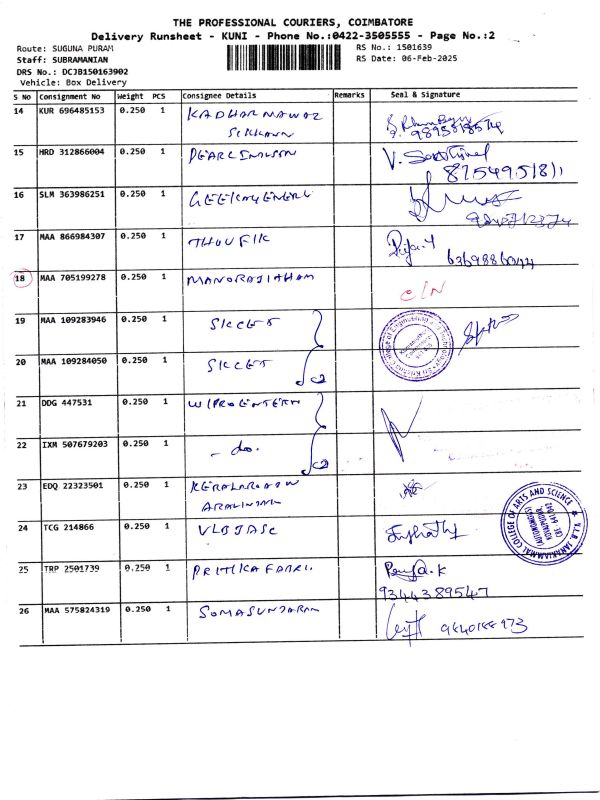 THE PROFESSIONAL COURIERS, COIMBATORE
Delivery Runsheet - KUNI - Phone No.:0422-3505555 - Page No.:2
Route: SUGUNA PURAM
RS No.: 1501639
Staff: SUBRAMANIAN
RS Date: 06-Feb-2025
DRS No.: DCJB150163902
Vehicle: Box Delivery
S No Consignment No Weight PCS Consignee Details Remarks Seal & Signature
14 KUR 696485153 0.250 1 KADHAR NAWAZ
15 HRD 312866004 0.250 1
V.
8754951811
16 SLM 363986251 0.250 1 GEEKAY ENERG
17 MAA 866984307 0.250 1 THOUFIK
18 MAA 705199278 0.250 1 MANORAJITHAM
C/N
19 MAA 109283946 0.250 1 SKCET
20 MAA 109284050 0.250 1 SKCET
21 DDG 447531 0.250 1 WIPROENTERN
22 IXM 507679203 0.250 1 - do.
23 EDQ 22323501 0.250 1
24 TCG 214866 0.250 1 VLBJASC
V.L.B. JANAKIAMMAL COLLEGE OF ARTS AND SCIENCE
(AUTONOMOUS)
KOVAIPUDUR,
CBE - 641 042
25 TRP 2501739 0.250 1 PRITIKA FABRI.
9344389547
26 MAA 575824319 0.250 1 SOMASUNDARAM